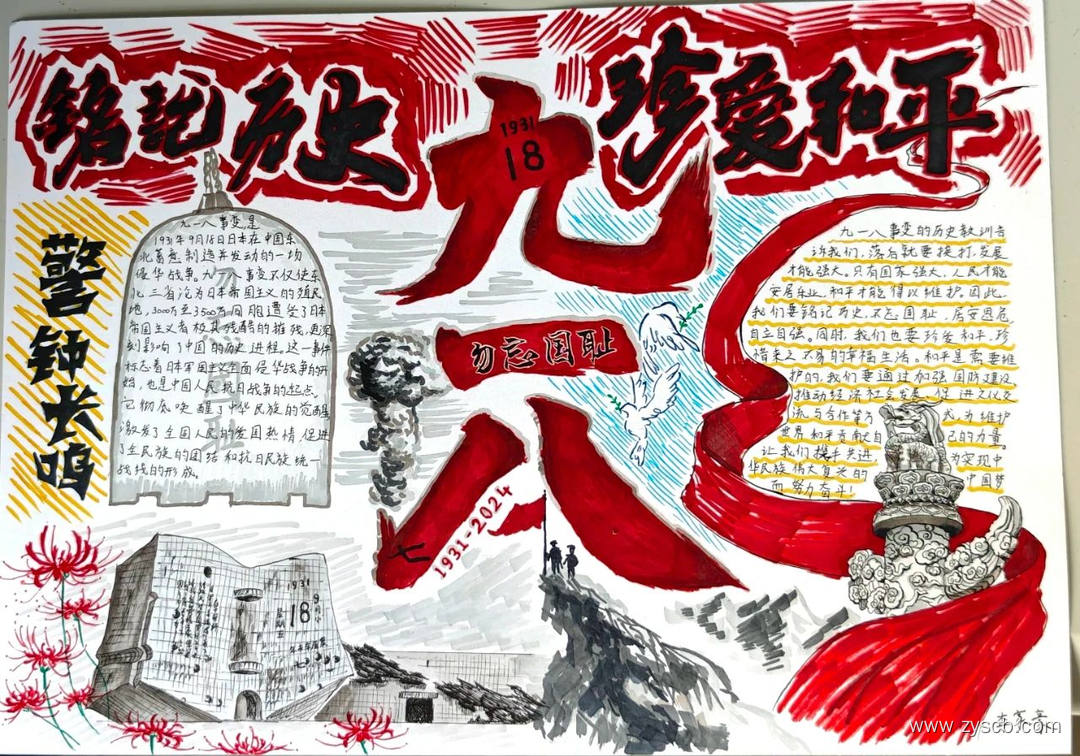 铭记历史
珍爱和平
1931
18
九
一
八
勿忘国耻
1931-2024
警钟长鸣
九一八事变是
1931年9月18日日本在中国东
北蓄意制造并发动的一场
侵华战争。九一八事变不仅使东
北三省沦为日本帝国主义的殖民
地,3000万至3500万同胞遭受了日本
帝国主义者极其残酷的摧残,更深
刻影响了中国的历史进程。这一事件
标志着日本军国主义全面侵华战争的开
始,也是中国人民抗日战争的起点。
它彻底唤醒了中华民族的觉醒
激发了全国人民的爱国热情,促进
了全民族的团结和抗日民族统一
战线的形成。
九一八事变的历史教训告
诉我们,落后就要挨打,发展
才能强大。只有国家强大,人民才能
安居乐业,和平才能得以维护。因此,
我们要铭记历史,不忘国耻,居安思危,
自立自强。同时,我们也要珍爱和平,珍
惜来之不易的幸福生活。和平是需要维
护的,我们要通过加强国防建设,
推动经济社会发展,促进文化交
流与合作等方式,为维护
世界和平贡献自己的力量。
让我们携手共进 为实现中
华民族伟大复兴的 中国梦
而努力奋斗!
1931
9
18
www.zyscb.com